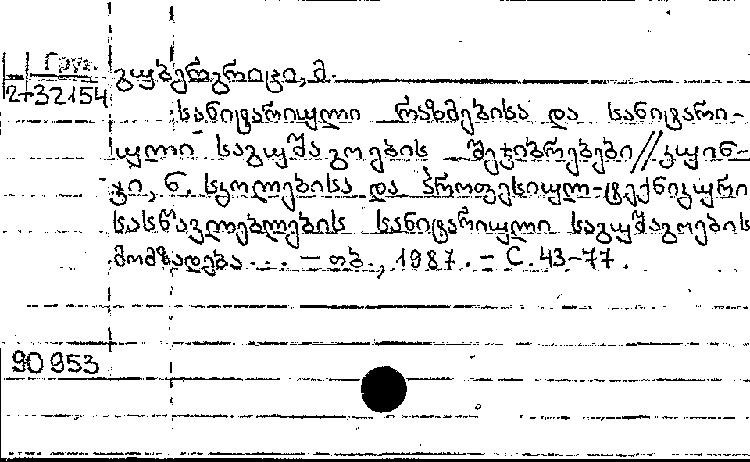 Груз. გუბერგრიცი, მ.
2-32154
სანიტარიული რაზმებისა და სანიტარი-
ული საგუშაგოების შეჯიბრებები//კუინ-
ჯი, ნ. სკოლებისა და პროფესიულ-ტექნიკური
სასწავლებლების სანიტარიული საგუშაგოების
მომზადება... – თბ., 1987. – С. 43-77.
90953